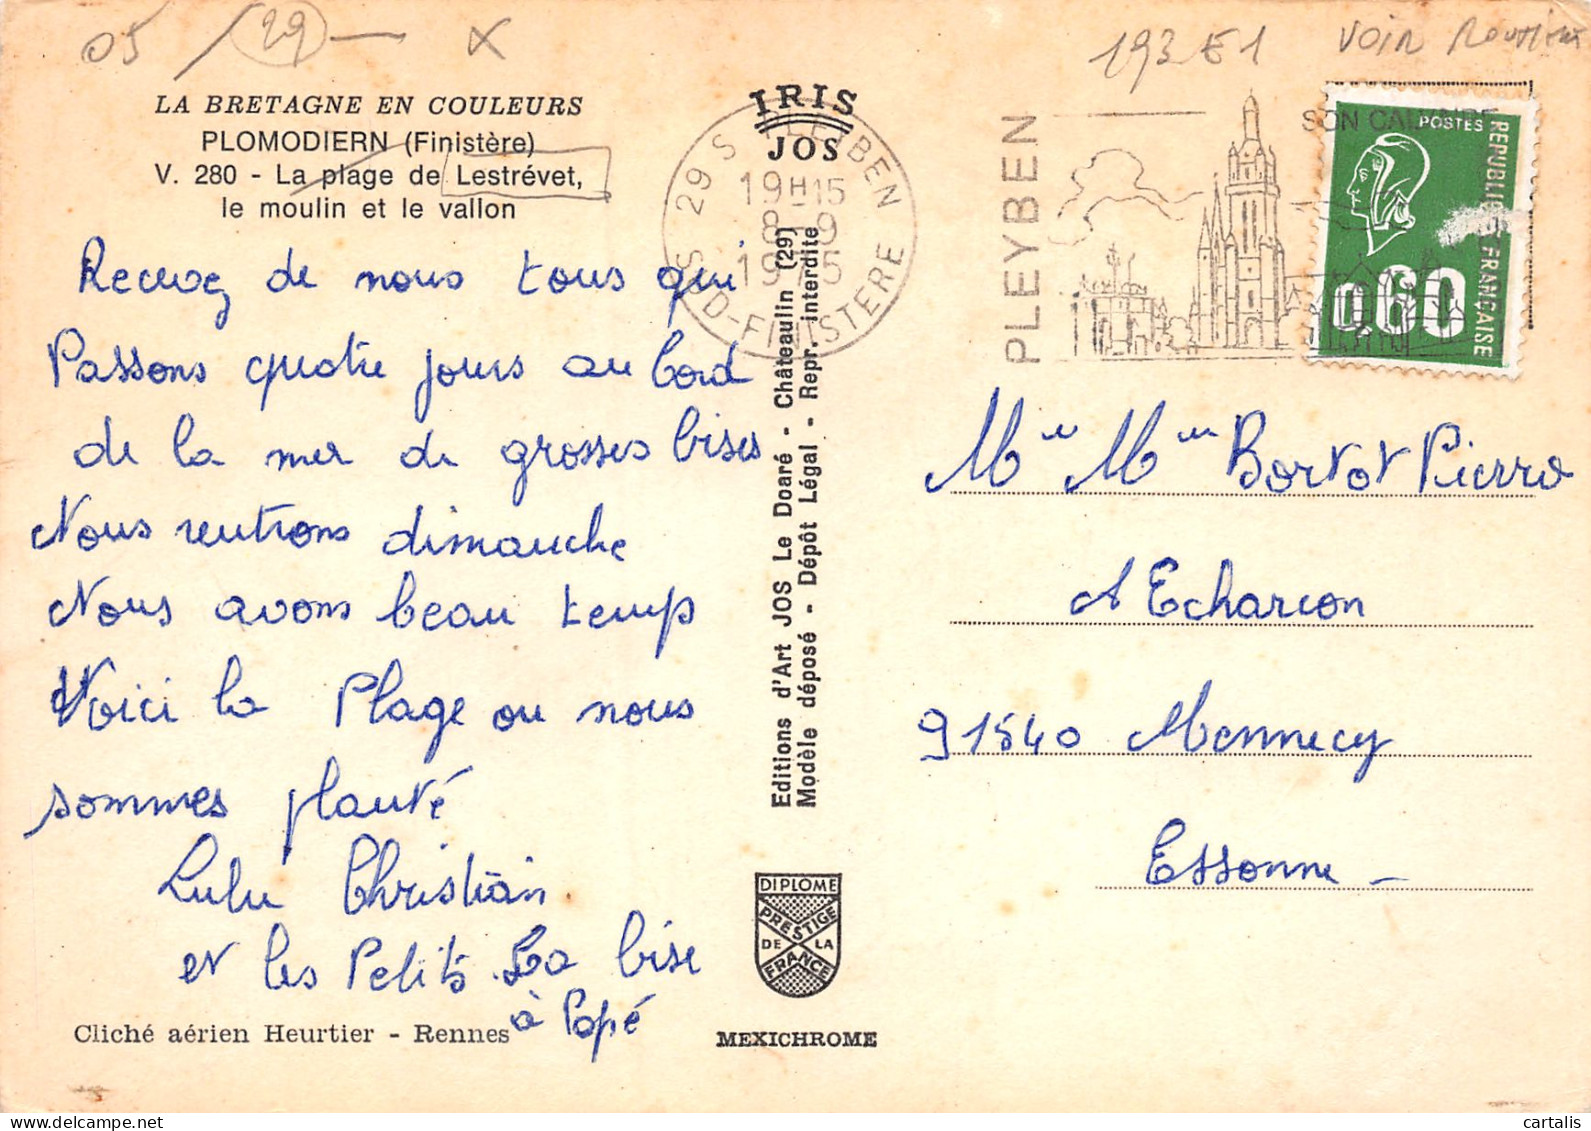 05 / 29 — X
193 E1 VOIR
LA BRETAGNE EN COULEURS
PLOMODIERN (Finistère)
V. 280 - La plage de Lestrévet,
le moulin et le vallon
Recevez de nous tous qui
Passons quatre jours au bord
de la mer de grosses bises
Nous rentrons dimanche
Nous avons beau temp
Voici la Plage ou nous
sommes planté
Lulu Christian
et les Petits La bise
à Papé
Cliché aérien Heurtier - Rennes
IRIS
JOS
29 S PLEYBEN
19H15
8-9
1975
SUD-FINISTERE
Editions d'Art JOS Le Doaré - Châteaulin (29)
Modèle déposé - Dépôt Légal - Repr. interdite
DIPLOME
PRESTIGE
DE LA
FRANCE
MEXICHROME
PLEYBEN
SON
POSTES
REPUBLIQUE FRANÇAISE
0,60
Mr Mme Bortot Pierre
A Echarcon
91540 Mennecy
Essonne -
cartalis